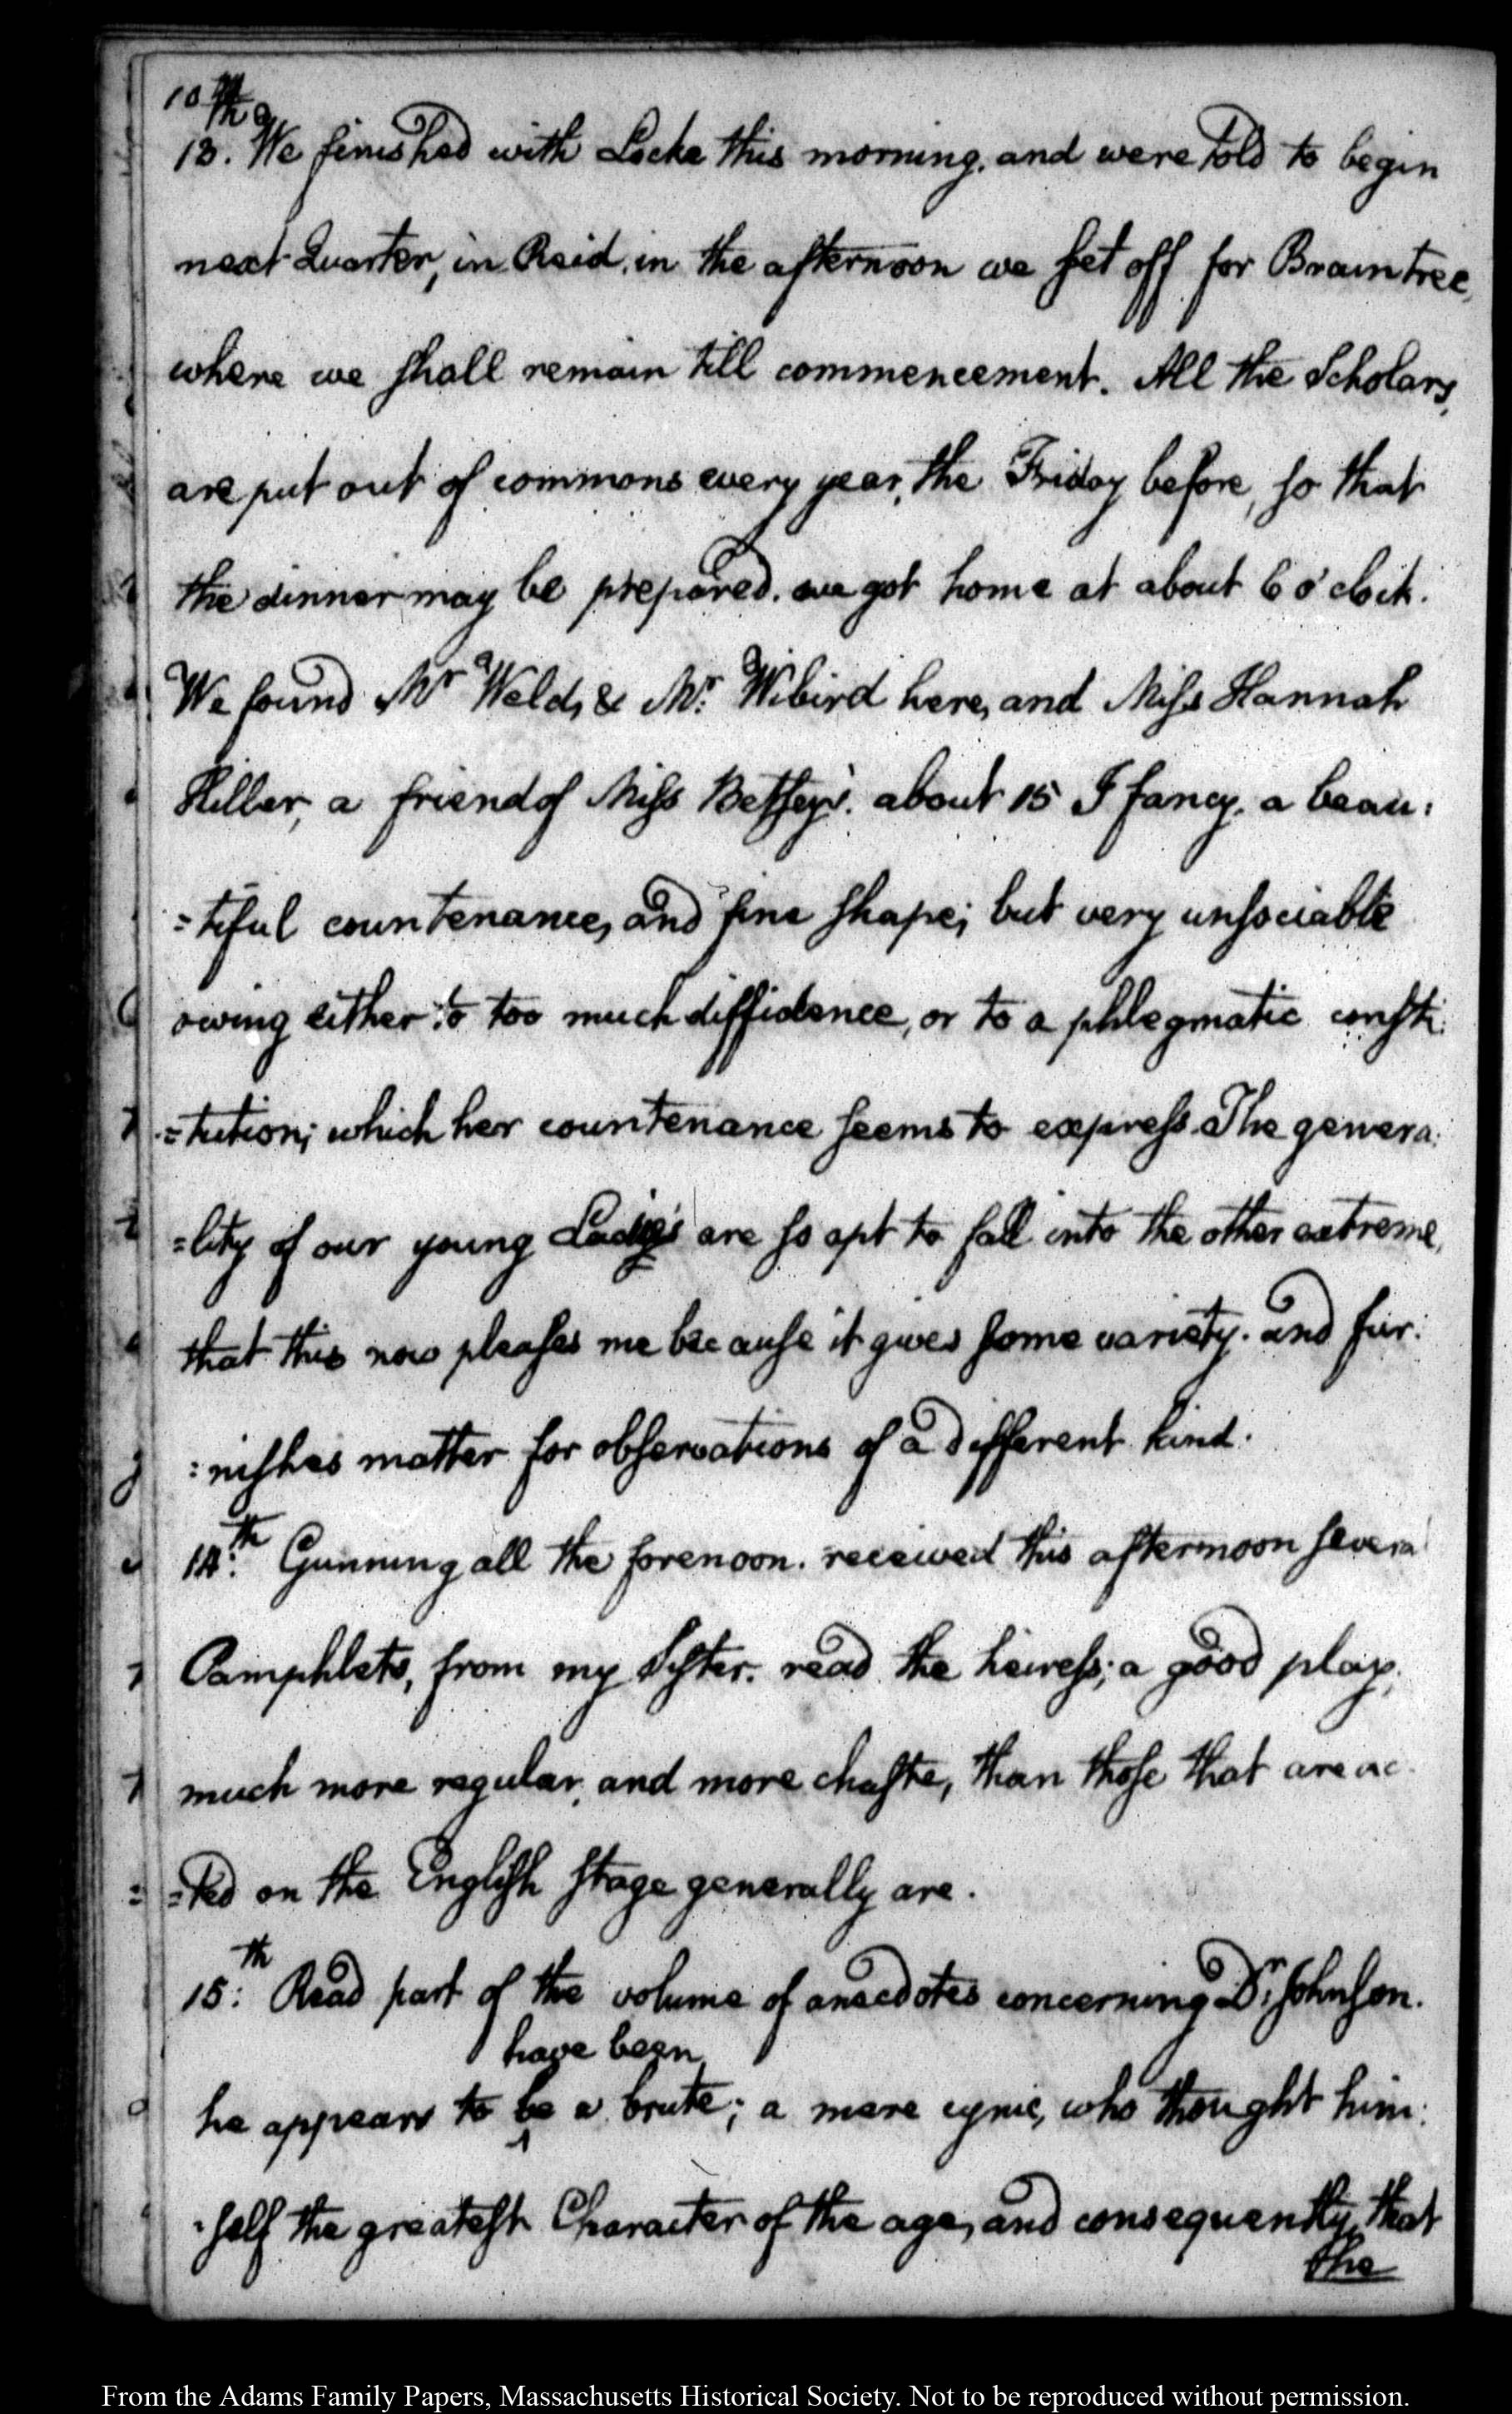 10
13.th We finished with Locke this morning, and were told to begin
next Quarter, in Reid, in the afternoon we set off for Braintree,
where we shall remain till commencement. All the Scholars,
are put out of commons every year, the Friday before, so that
the dinner may be prepared. we got home at about 6 o'clock.
We found Mr Weld, & Mr: Wibird here, and Miss Hannah
Hiller, a friend of Miss Betsey's. about 15 I fancy. a beau:
=tiful countenance, and fine shape; but very unsociable
owing either to too much diffidence, or to a phlegmatic consti:
=tution; which her countenance seems to express. The genera:
=lity of our young Ladies are so apt to fall into the other extreme,
that this now pleases me because it gives some variety. and fur:
:nishes matter for observations of a different kind.
14:th Gunning all the forenoon. received this afternoon several
Pamphlets, from my Sister. read the heiress; a good play,
much more regular, and more chaste, than those that are ac:
=ted on the English stage generally are.
15:th Read part of the volume of anecdotes concerning Dr: Johnson.
have been
he appears to be a brute; a mere cynic, who thought him:
:self the greatest Character of the age, and consequently, that
the
From the Adams Family Papers, Massachusetts Historical Society. Not to be reproduced without permission.